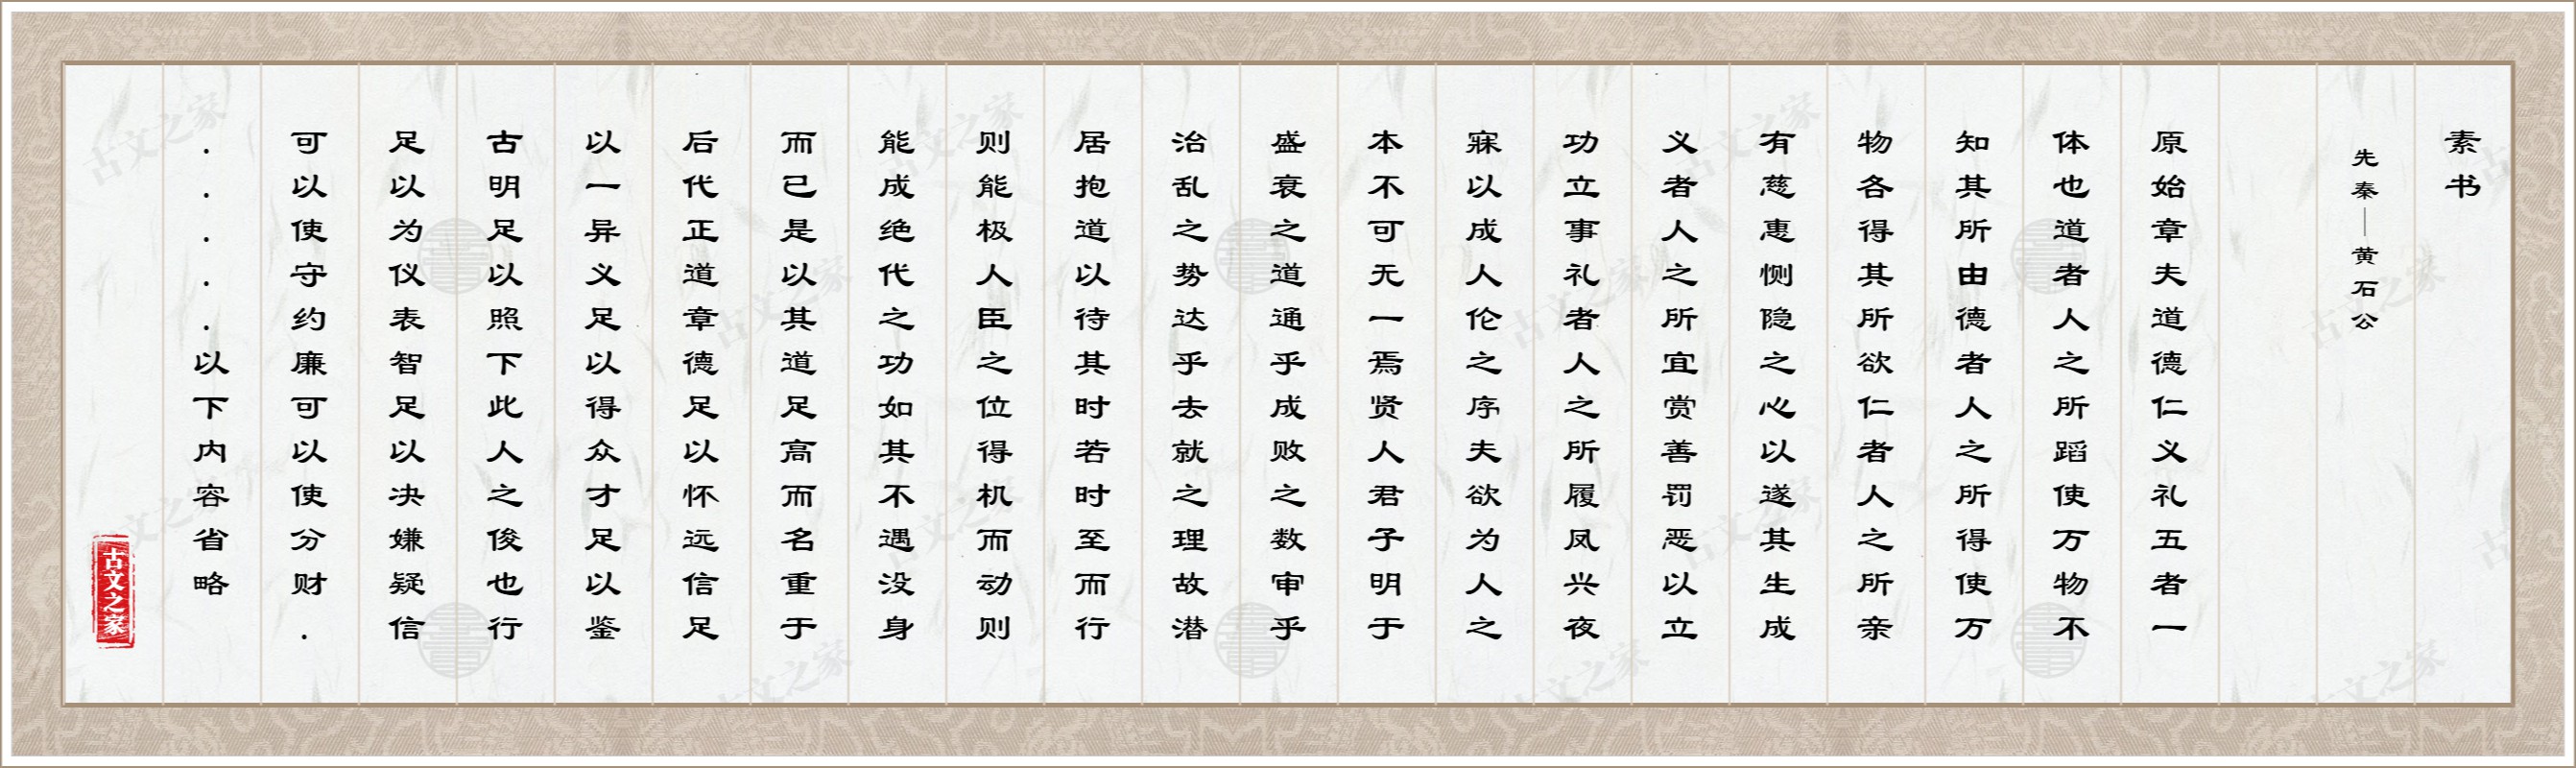 素书
先秦—黄石公
原始章夫道德仁义礼五者一
体也道者人之所蹈使万物不
知其所由德者人之所得使万
物各得其所欲仁者人之所亲
有慈惠恻隐之心以遂其生成
义者人之所宜赏善罚恶以立
功立事礼者人之所履夙兴夜
寐以成人伦之序夫欲为人之
本不可无一焉贤人君子明于
盛衰之道通乎成败之数审乎
治乱之势达乎去就之理故潜
居抱道以待其时若时至而行
则能极人臣之位得机而动则
能成绝代之功如其不遇没身
而已是以其道足高而名重于
后代正道章德足以怀远信足
以一异义足以得众才足以鉴
古明足以照下此人之俊也行
足以为仪表智足以决嫌疑信
可以使守约廉可以使分财.
.....以下内容省略
古文之家